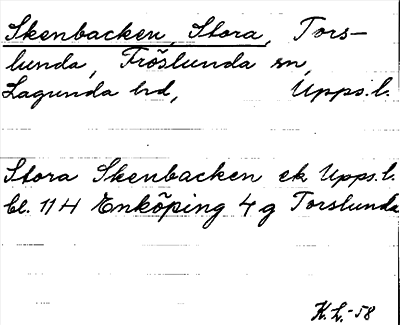 Skenbacken, Stora, Tors-
lunda, Fröslunda sn,
Lagunda hd, Upps.l.
Stora Skenbacken ek Upps.l.
bl. 114 Enköping 4g Torslunda
K.L.-58